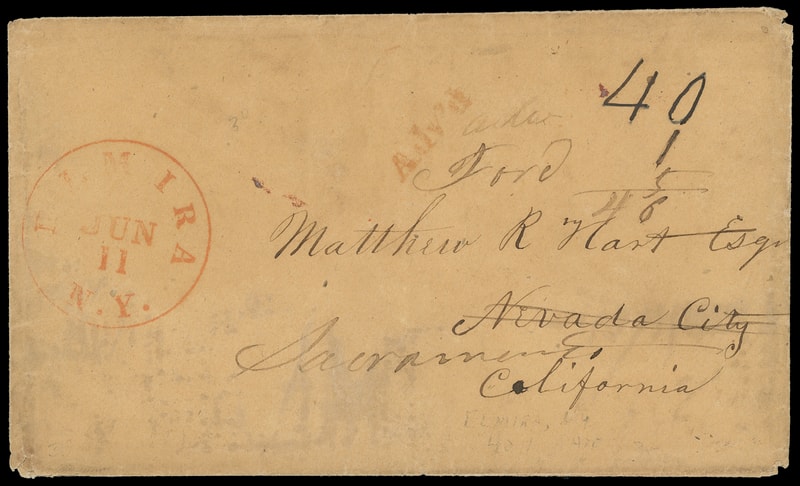 40
Adv'd
adv
1
Ford
5
46
ELMIRA
JUN
11
N.Y.
Matthew R Hart Esqr
Nevada City
Sacramento
California
ELMIRA, NY
40